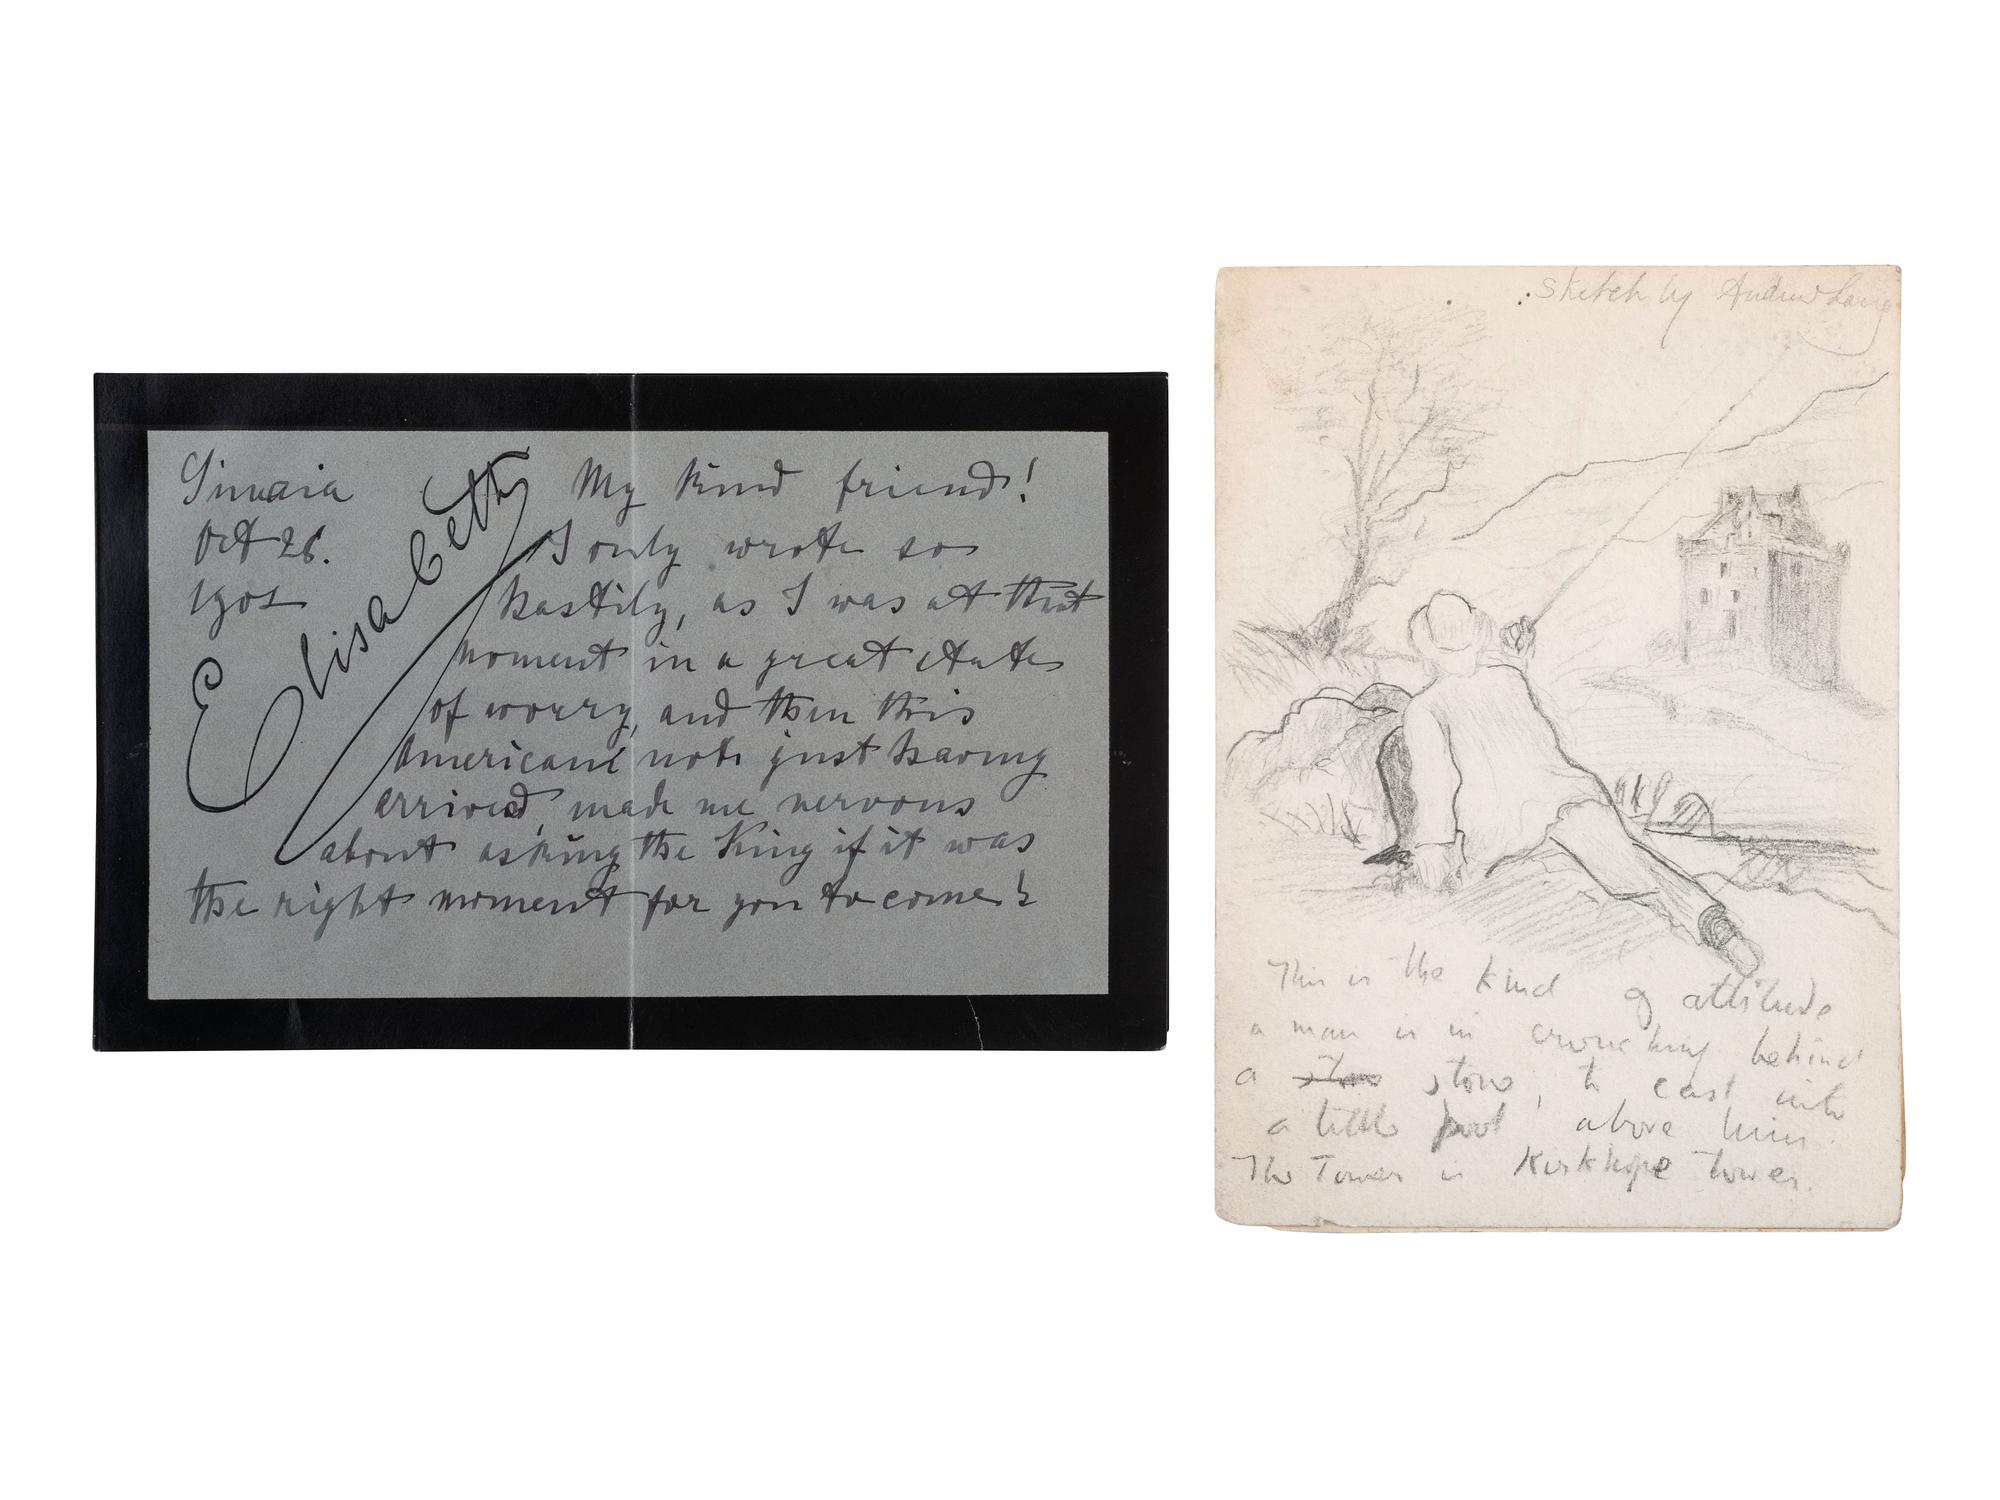 Sinaia
Oct 26.
Elisabeth
My kind friend!
I only wrote so
hastily, as I was at that
moment in a great state
of worry, and then this
American note just having
arrived, made me nervous
about asking the King if it was
the right moment for you to come!
Sketch by Andrew Lang
This is the kind of attitude
a man is in crouching behind
a stone, to cast into
a little pool above him.
The Tower is Kirkhope tower.